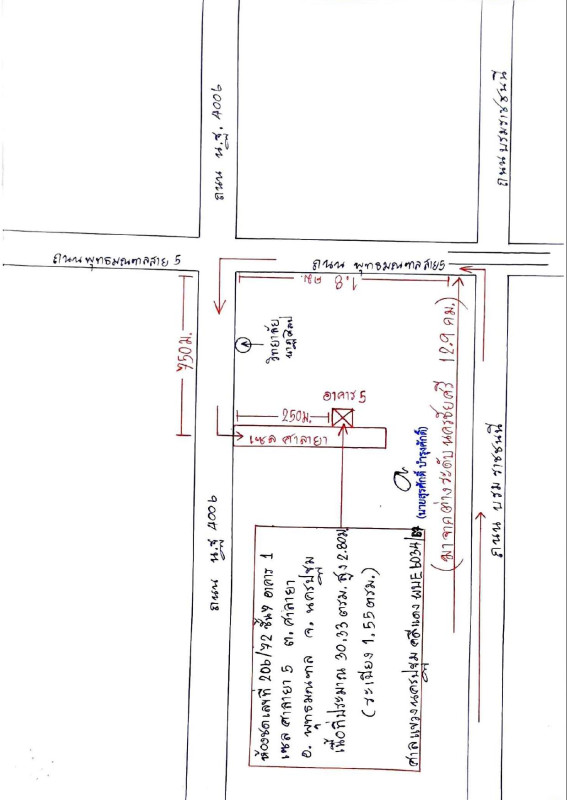 ถนน น.ฐ. 4006
ถนนบรมราชชนนี
ถนนพุทธมณฑลสาย 5
ถนน พุทธมณฑลสาย5
1.8 กม.
950ม.
วิทยาลัย
นาฏศิลป
อาคาร 5
250ม.
เซล ศาลายา
(มาจากต่างระดับนครชัยศรี 12.9 กม.)
(นายสุรศักดิ์ บำรุงศักดิ์)
ถนน น.ฐ 4006
ถนน บรมราชชนนี
ห้องชุดเลขที่ 206/72 ชั้น9 อาคาร 1
เซล ศาลายา 5 ต.ศาลายา
อ. พุทธมณฑล จ. นครปฐม
เนื้อที่ประมาณ 30.33 ตรม. สูง 2.80ม
(ระเบียง 1.55 ตรม.)
ศาลแขวงนครปฐม คดีแดง ผบE6034/